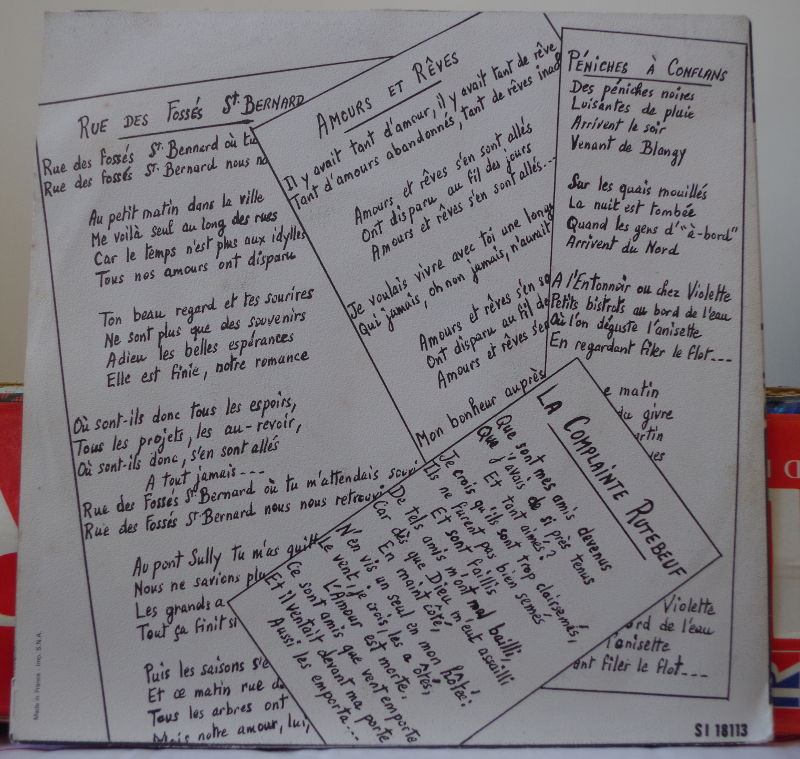 RUE DES FOSSÉS St. BERNARD
Rue des Fossés St. Bernard où tu
Rue des fossés St. Bernard nous
Au petit matin dans la ville
Me voilà seul au long des rues
Car le temps n'est plus aux idylles
Tous nos amours ont disparu
Ton beau regard et tes sourires
Ne sont plus que des souvenirs
Adieu les belles espérances
Elle est finie, notre romance
Où sont-ils donc tous les espoirs,
Tous les projets, les au-revoir,
Où sont-ils donc, s'en sont allés
A tout jamais---
Rue des Fossés St. Bernard où tu m'attendais
Rue des Fossés St. Bernard nous nous
Au pont Sully tu m'as
Nous ne saviens
Les grands
Tout ça finit
Puis les saisons
Et ce matin rue
Tous les arbres ont
Mais notre amour, lui,
AMOURS ET RÊVES
Il y avait tant d'amour, il y avait tant de rêve
Tant d'amours abandonnés, tant de rêves
Amours et rêves s'en sont allés
Ont disparu au fil des jours
Amours et rêves s'en sont allés...
Je voulais vivre avec toi une
Qui jamais, oh non jamais, n'aurait
Amours et rêves s'en
Ont disparu au fil
Amours et rêves
Mon bonheur auprès
PÉNICHES À CONFLANS
Des péniches noires
Luisantes de pluie
Arrivent le soir
Venant de Blangy
Sur les quais mouillés
La nuit est tombée
Quand les gens d'"à-bord"
Arrivent du Nord
A l'Entonnoir ou chez Violette
Petits bistrots au bord de l'eau
Où l'on déguste l'anisette
En regardant filer le flot---
matin
givre
Violette
de l'eau
l'anisette
filer le flot---
LA COMPLAINTE RUTEBEUF
Que sont mes amis devenus
Que j'avais de si près tenus
Et tant aimés?
Je crois qu'ils sont trop clairsemés,
Ils ne furent pas bien semés
Et sont faillis
De tels amis m'ont mal bailli,
Car dès que Dieu m'eut assailli
En maint côté,
N'en vis un seul en mon hôté:
Le vent, je crois, les a ôtés,
L'Amour est morte.
Ce sont amis que vent emporte
Et il ventait devant ma porte
Aussi les emporta...
Made in France Imp. S.N.A.
SI 18113